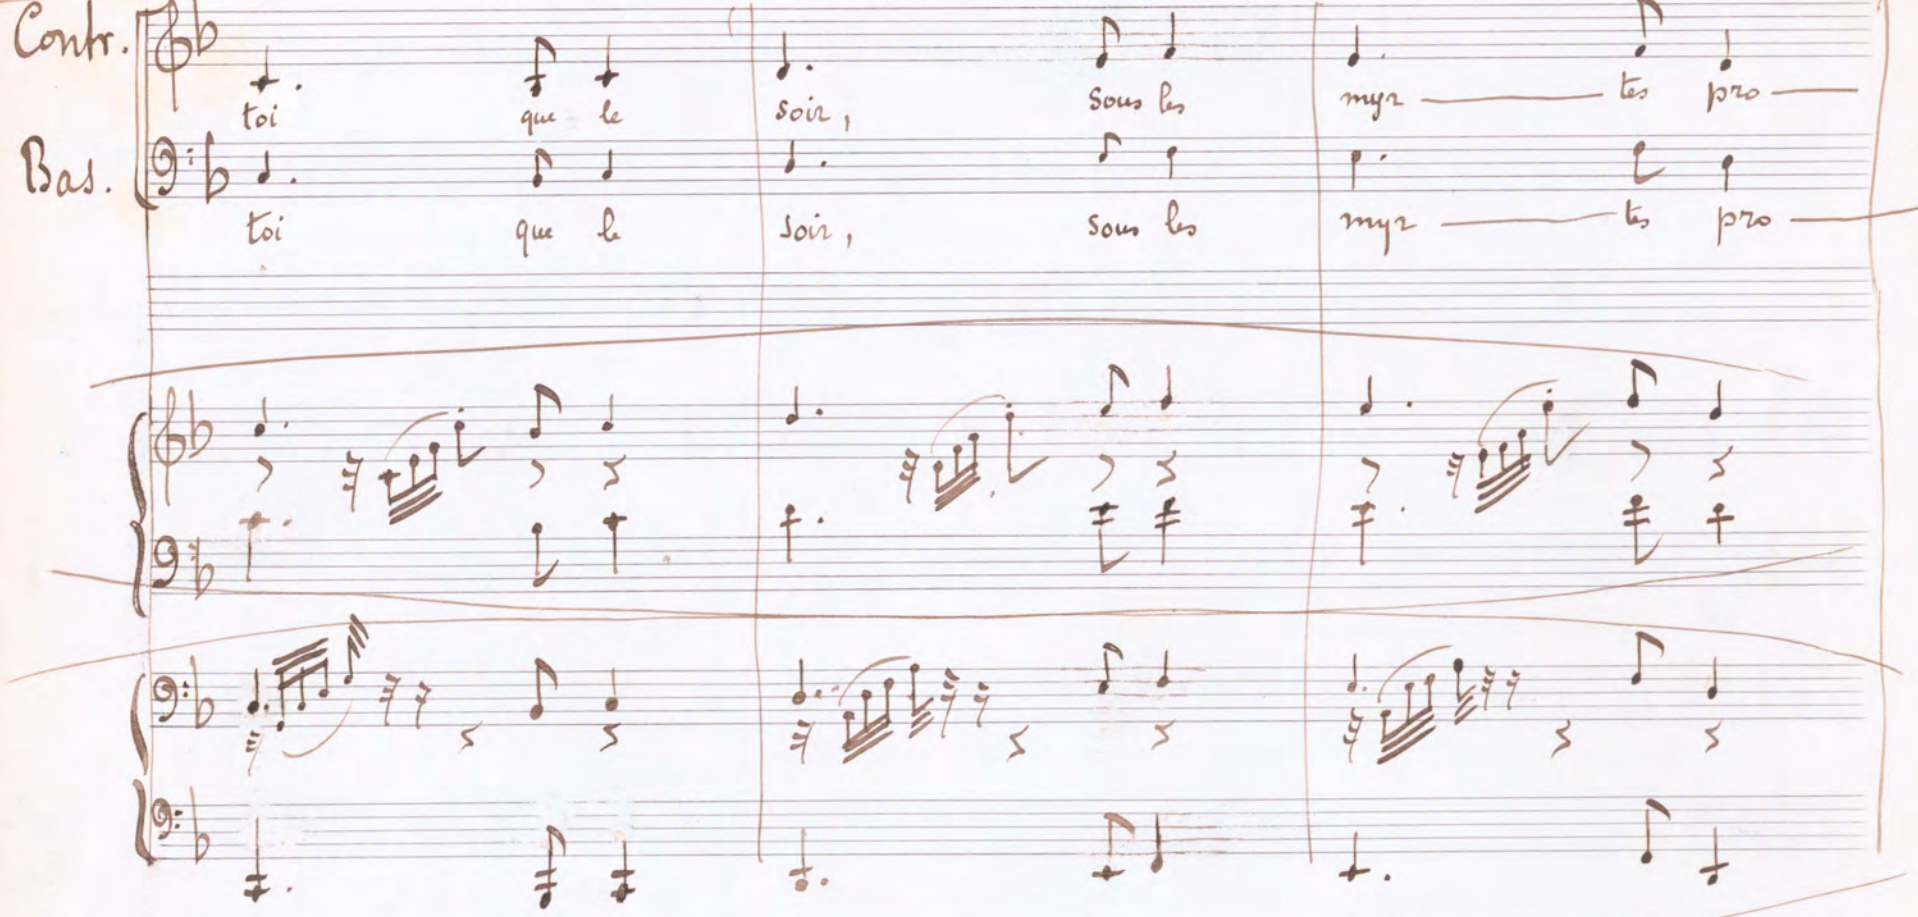 Contr.
toi que le soir, Sous les myr - tes pro -
Bas.
toi que le soir, sous les myr - tes pro -